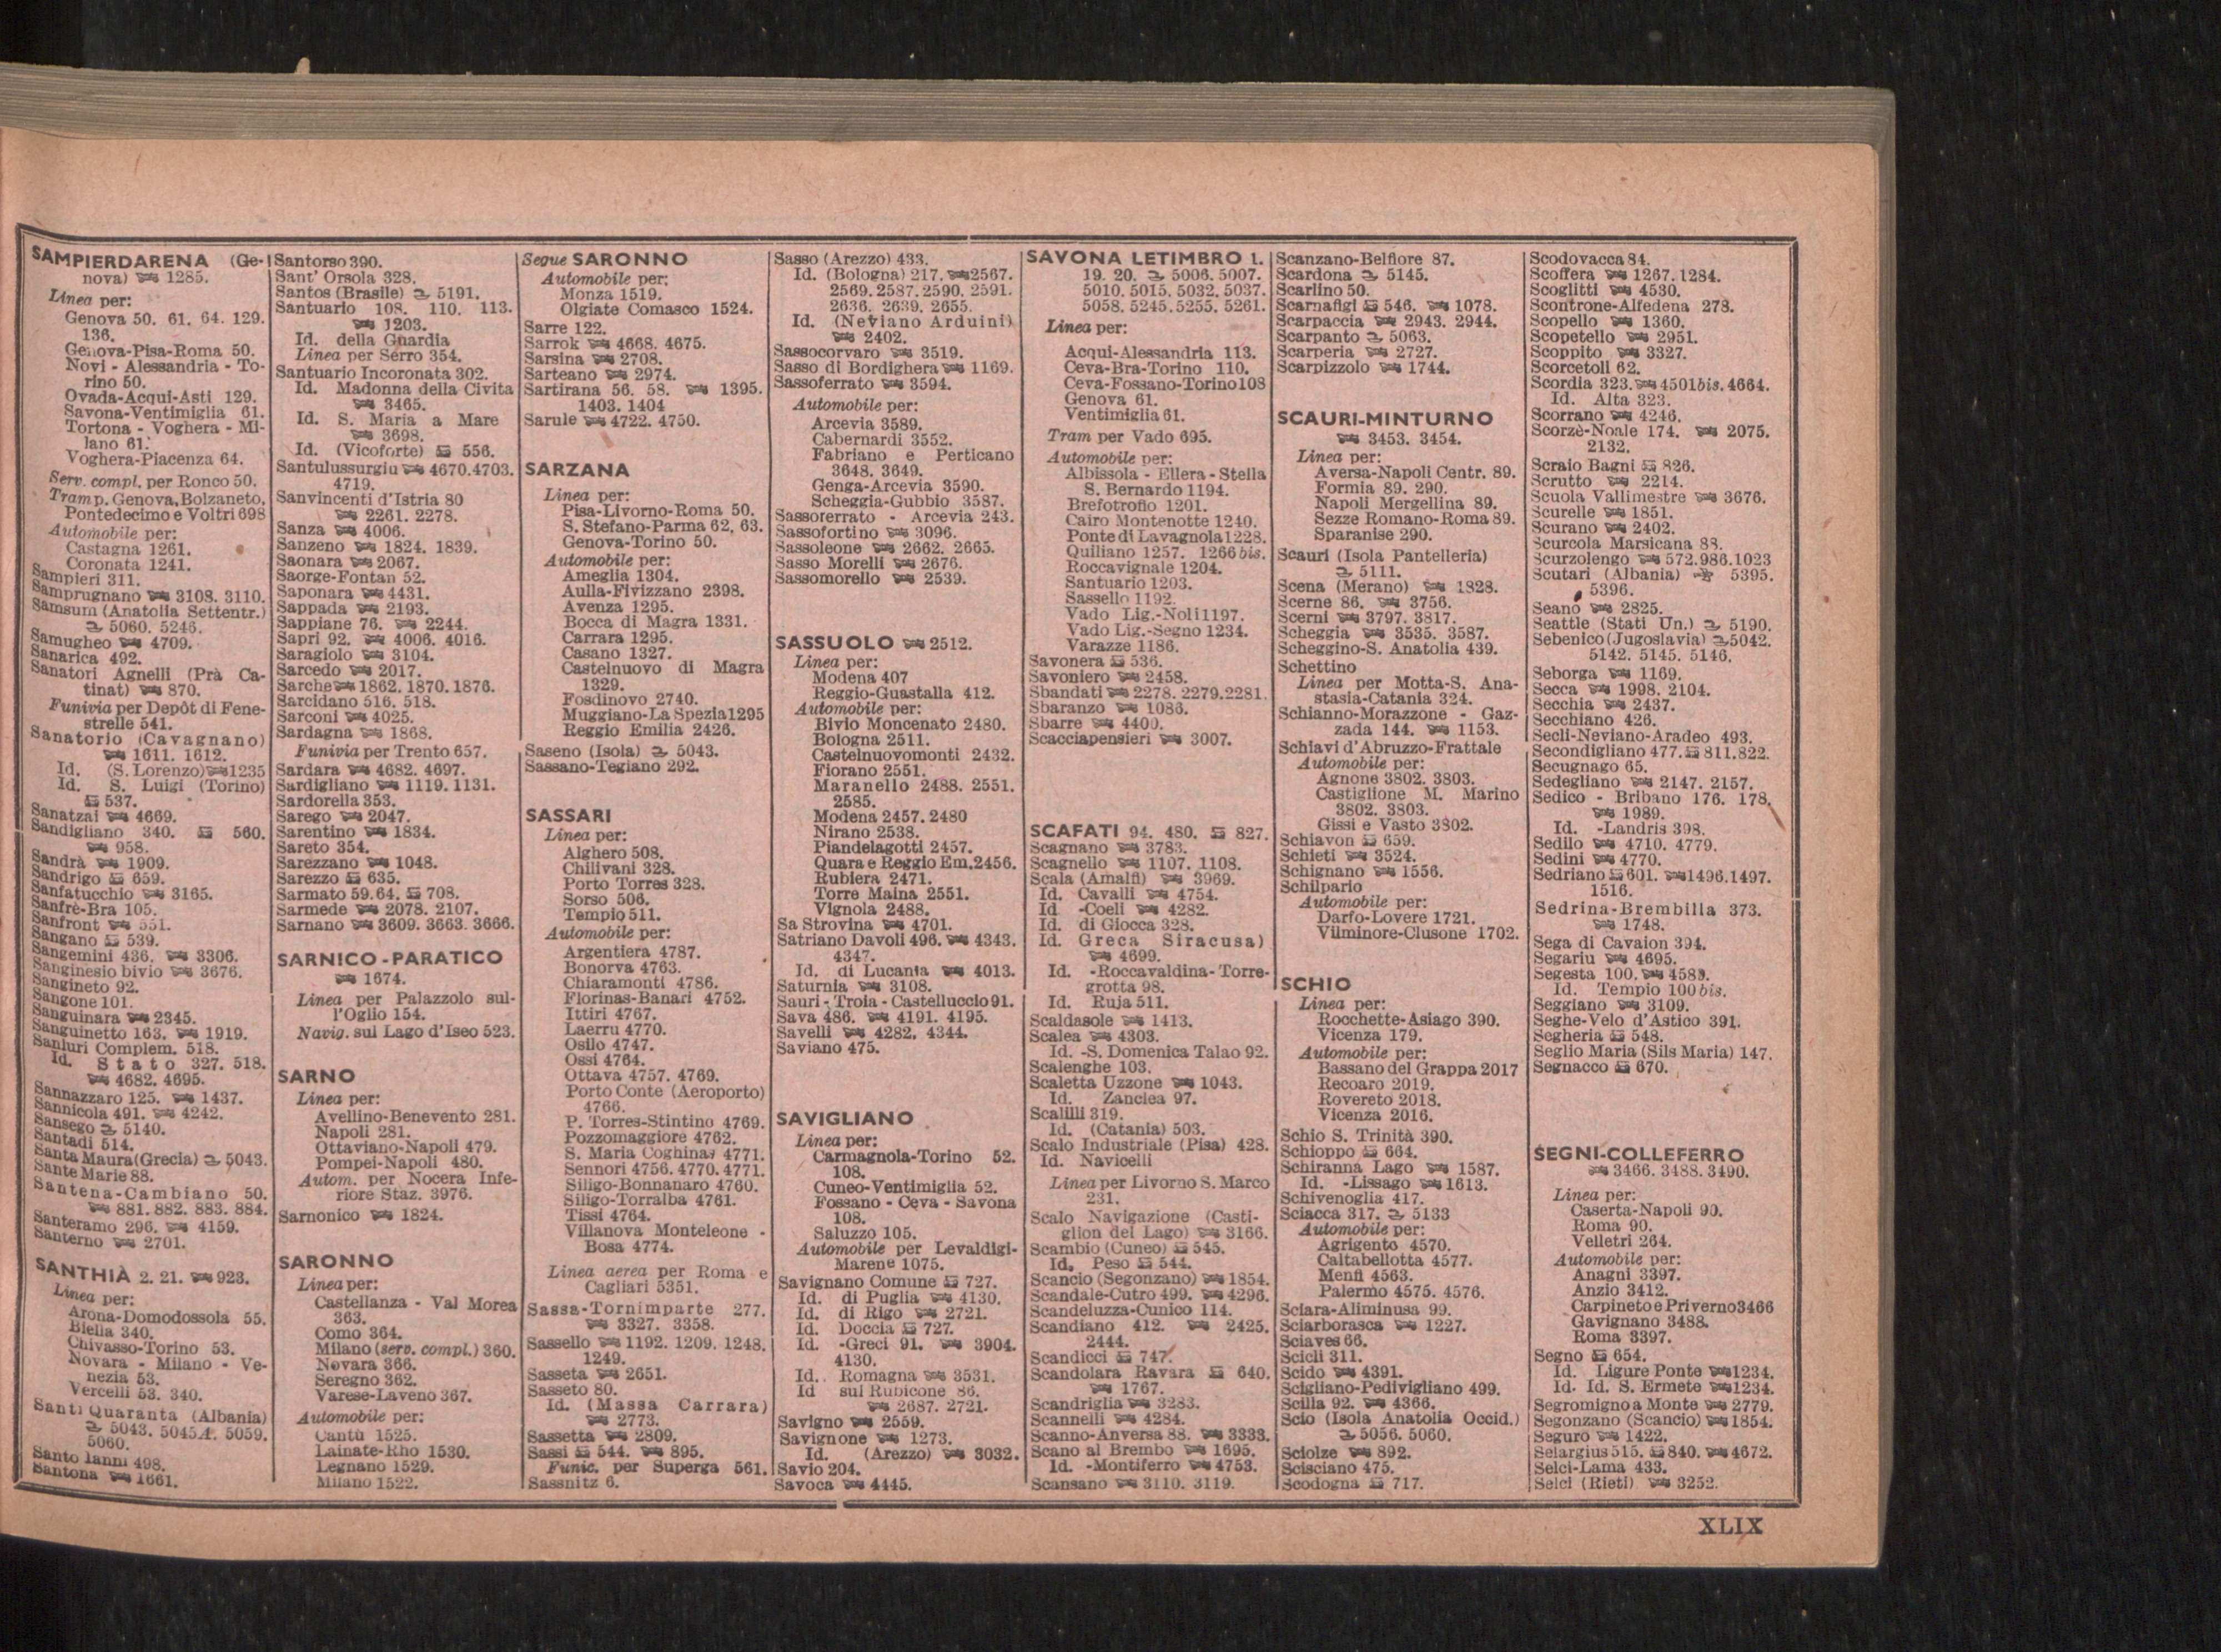 SAMPIERDARENA (Ge-
nova) 1285.
Linea per:
Genova 50. 61. 64. 129.
136.
Genova-Pisa-Roma 50.
Novi - Alessandria - To-
rino 50.
Ovada-Acqui-Asti 129.
Savona-Ventimiglia 61.
Tortona - Voghera - Mi-
lano 61.
Voghera-Piacenza 64.
Serv. compl. per Ronco 50.
Tram p. Genova, Bolzaneto,
Pontedecimo e Voltri 698
Automobile per:
Castagna 1261.
Coronata 1241.
Sampieri 311.
Samprugnano 3108. 3110.
Samsum (Anatolia Settentr.)
5060. 5246.
Samugheo 4709.
Sanarica 492.
Sanatori Agnelli (Prà Ca-
tinat) 870.
Funivia per Depôt di Fene-
strelle 541.
Sanatorio (Cavagnano)
1611. 1612.
Id. (S. Lorenzo) 1235
Id. S. Luigi (Torino)
537.
Sanatzai 4669.
Sandigliano 340. 560.
958.
Sandrà 1909.
Sandrigo 659.
Sanfatucchio 3165.
Sanfrè-Bra 105.
Sanfront 551.
Sangano 539.
Sangemini 436. 3306.
Sanginesio bivio 3676.
Sangineto 92.
Sangone 101.
Sanguinara 2345.
Sanguinetto 163. 1919.
Sanluri Complem. 518.
Id. Stato 327. 518.
4682. 4695.
Sannazzaro 125. 1437.
Sannicola 491. 4242.
Sansego 5140.
Santadi 514.
Santa Maura (Grecia) 5043.
Sante Marie 88.
Santena-Cambiano 50.
881. 882. 883. 884.
Santeramo 296. 4159.
Santerno 2701.
SANTHIÀ 2. 21. 923.
Linea per:
Arona-Domodossola 55.
Biella 340.
Chivasso-Torino 53.
Novara - Milano - Ve-
nezia 53.
Vercelli 53. 340.
Santi Quaranta (Albania)
5043. 5045A. 5059.
5060.
Santo Ianni 498.
Santona 1661.
Santorso 390.
Sant' Orsola 328.
Santos (Brasile) 5191.
Santuario 108. 110. 113.
1203.
Id. della Guardia
Linea per Serro 354.
Santuario Incoronata 302.
Id. Madonna della Civita
3465.
Id. S. Maria a Mare
3698.
Id. (Vicoforte) 556.
Santulussurgiu 4670. 4703.
4719.
Sanvincenti d'Istria 80
2261. 2278.
Sanza 4006.
Sanzeno 1824. 1839.
Saonara 2067.
Saorge-Fontan 52.
Saponara 4431.
Sappada 2193.
Sappiane 76. 2244.
Sapri 92. 4006. 4016.
Saragiolo 3104.
Sarcedo 2017.
Sarche 1862. 1870. 1876.
Sarcidano 516. 518.
Sarconi 4025.
Sardagna 1868.
Funivia per Trento 657.
Sardara 4682. 4697.
Sardigliano 1119. 1131.
Sardorella 353.
Sarego 2047.
Sarentino 1834.
Sareto 354.
Sarezzano 1048.
Sarezzo 635.
Sarmato 59. 64. 708.
Sarmede 2078. 2107.
Sarnano 3609. 3663. 3666.
SARNICO - PARATICO
1674.
Linea per Palazzolo sul-
l'Oglio 154.
Navig. sul Lago d'Iseo 523.
SARNO
Linea per:
Avellino-Benevento 281.
Napoli 281.
Ottaviano-Napoli 479.
Pompei-Napoli 480.
Autom. per Nocera Infe-
riore Staz. 3976.
Sarnonico 1824.
SARONNO
Linea per:
Castellanza - Val Morea
363.
Como 364.
Milano (serv. compl.) 360.
Novara 366.
Seregno 362.
Varese-Laveno 367.
Automobile per:
Cantù 1525.
Lainate-Rho 1530.
Legnano 1529.
Milano 1522.
Segue SARONNO
Automobile per:
Monza 1519.
Olgiate Comasco 1524.
Sarre 122.
Sarrok 4668. 4675.
Sarsina 2708.
Sarteano 2974.
Sartirana 56. 58. 1395.
1403. 1404
Sarule 4722. 4750.
SARZANA
Linea per:
Pisa-Livorno-Roma 50.
S. Stefano-Parma 62, 63.
Genova-Torino 50.
Automobile per:
Ameglia 1304.
Aulla-Fivizzano 2398.
Avenza 1295.
Bocca di Magra 1331.
Carrara 1295.
Casano 1327.
Castelnuovo di Magra
1329.
Fosdinovo 2740.
Muggiano-La Spezia 1295
Reggio Emilia 2426.
Saseno (Isola) 5043.
Sassano-Tegiano 292.
SASSARI
Linea per:
Alghero 508.
Chilivani 328.
Porto Torres 328.
Sorso 506.
Tempio 511.
Automobile per:
Argentiera 4787.
Bonorva 4763.
Chiaramonti 4786.
Florinas-Banari 4752.
Ittiri 4767.
Laerru 4770.
Osilo 4747.
Ossi 4764.
Ottava 4757. 4769.
Porto Conte (Aeroporto)
4766.
P. Torres-Stintino 4769.
Pozzomaggiore 4762.
S. Maria Coghinas 4771.
Sennori 4756. 4770. 4771.
Siligo-Bonnanaro 4760.
Siligo-Torralba 4761.
Tissi 4764.
Villanova Monteleone -
Bosa 4774.
Linea aerea per Roma e
Cagliari 5351.
Sassa-Tornimparte 277.
3327. 3358.
Sassello 1192. 1209. 1248.
1249.
Sasseta 2651.
Sasseto 80.
Id. (Massa Carrara)
2773.
Sassetta 2809.
Sassi 544. 895.
Funic. per Superga 561.
Sassnitz 6.
Sasso (Arezzo) 433.
Id. (Bologna) 217. 2567.
2569. 2587. 2590. 2591.
2636. 2639. 2655.
Id. (Neviano Arduini)
2402.
Sassocorvaro 3519.
Sasso di Bordighera 1169.
Sassoferrato 3594.
Automobile per:
Arcevia 3589.
Cabernardi 3552.
Fabriano e Perticano
3648. 3649.
Genga-Arcevia 3590.
Scheggia-Gubbio 3587.
Sassoferrato - Arcevia 243.
Sassofortino 3096.
Sassoleone 2662. 2665.
Sasso Morelli 2676.
Sassomorello 2539.
SASSUOLO 2512.
Linea per:
Modena 407
Reggio-Guastalla 412.
Automobile per:
Bivio Moncenato 2480.
Bologna 2511.
Castelnuovomonti 2432.
Fiorano 2551.
Maranello 2488. 2551.
2585.
Modena 2457. 2480
Nirano 2538.
Piandelagotti 2457.
Quara e Reggio Em. 2456.
Rubiera 2471.
Torre Maina 2551.
Vignola 2488.
Sa Strovina 4701.
Satriano Davoli 496. 4343.
4347.
Id. di Lucania 4013.
Saturnia 3108.
Sauri - Troia - Castelluccio 91.
Sava 486. 4191. 4195.
Savelli 4282. 4344.
Saviano 475.
SAVIGLIANO
Linea per:
Carmagnola-Torino 52.
108.
Cuneo-Ventimiglia 52.
Fossano - Ceva - Savona
108.
Saluzzo 105.
Automobile per Levaldigi-
Marene 1075.
Savignano Comune 727.
Id. di Puglia 4130.
Id. di Rigo 2721.
Id. Doccia 727.
Id. -Greci 91. 3904.
4130.
Id. Romagna 3531.
Id sul Rubicone 86.
2687. 2721.
Savigno 2559.
Savignone 1273.
Id. (Arezzo) 3032.
Savio 204.
Savoca 4445.
SAVONA LETIMBRO 1.
19. 20. 5006. 5007.
5010. 5015. 5032. 5037.
5058. 5245. 5255. 5261.
Linea per:
Acqui-Alessandria 113.
Ceva-Bra-Torino 110.
Ceva-Fossano-Torino 108
Genova 61.
Ventimiglia 61.
Tram per Vado 695.
Automobile per:
Albissola - Ellera - Stella
S. Bernardo 1194.
Brefotrofio 1201.
Cairo Montenotte 1240.
Ponte di Lavagnola 1228.
Quiliano 1257. 1266bis.
Roccavignale 1204.
Santuario 1203.
Sassello 1192.
Vado Lig.-Noli 1197.
Vado Lig.-Segno 1234.
Varazze 1186.
Savonera 536.
Savoniero 2458.
Sbandati 2278. 2279. 2281.
Sbaranzo 1086.
Sbarre 4400.
Scacciapensieri 3007.
SCAFATI 94. 480. 827.
Scagnano 3783.
Scagnello 1107. 1108.
Scala (Amalfi) 3969.
Id. Cavalli 4754.
Id -Coeli 4282.
Id. di Giocca 328.
Id. Greca Siracusa)
4699.
Id. -Roccavaldina-Torre-
grotta 98.
Id. Ruja 511.
Scaldasole 1413.
Scalea 4303.
Id. -S. Domenica Talao 92.
Scalenghe 103.
Scaletta Uzzone 1043.
Id. Zanclea 97.
Scalilli 319.
Id. (Catania) 503.
Scalo Industriale (Pisa) 428.
Id. Navicelli
Linea per Livorno S. Marco
231.
Scalo Navigazione (Casti-
glion del Lago) 3166.
Scambio (Cuneo) 545.
Id. Peso 544.
Scancio (Segonzano) 1854.
Scandale-Cutro 499. 4296.
Scandeluzza-Cunico 114.
Scandiano 412. 2425.
2444.
Scandicci 747.
Scandolara Ravara 640.
1767.
Scandriglia 3283.
Scannelli 4284.
Scanno-Anversa 88. 3333.
Scano al Brembo 1695.
Id. -Montiferro 4753.
Scansano 3110. 3119.
Scanzano-Belfiore 87.
Scardona 5145.
Scarlino 50.
Scarnafigi 546. 1078.
Scarpaccia 2943. 2944.
Scarpanto 5063.
Scarperia 2727.
Scarpizzolo 1744.
SCAURI-MINTURNO
3453. 3454.
Linea per:
Aversa-Napoli Centr. 89.
Formia 89. 290.
Napoli Mergellina 89.
Sezze Romano-Roma 89.
Sparanise 290.
Scauri (Isola Pantelleria)
5111.
Scena (Merano) 1828.
Scerne 86. 3756.
Scerni 3797. 3817.
Scheggia 3535. 3587.
Scheggino-S. Anatolia 439.
Schettino
Linea per Motta-S. Ana-
stasia-Catania 324.
Schianno-Morazzone - Gaz-
zada 144. 1153.
Schiavi d'Abruzzo-Frattale
Automobile per:
Agnone 3802. 3803.
Castiglione M. Marino
3802. 3803.
Gissi e Vasto 3802.
Schiavon 659.
Schieti 3524.
Schignano 1556.
Schilpario
Automobile per:
Darfo-Lovere 1721.
Vilminore-Clusone 1702.
SCHIO
Linea per:
Rocchette-Asiago 390.
Vicenza 179.
Automobile per:
Bassano del Grappa 2017
Recoaro 2019.
Rovereto 2018.
Vicenza 2016.
Schio S. Trinità 390.
Schioppo 664.
Schiranna Lago 1587.
Id. -Lissago 1613.
Schivenoglia 417.
Sciacca 317. 5133
Automobile per:
Agrigento 4570.
Caltabellotta 4577.
Menfi 4563.
Palermo 4575. 4576.
Sciara-Aliminusa 99.
Sciarborasca 1227.
Sciaves 66.
Scicli 311.
Scido 4391.
Scigliano-Pedivigliano 499.
Scilla 92. 4366.
Scio (Isola Anatolia Occid.)
5056. 5060.
Sciolze 892.
Scisciano 475.
Scodogna 717.
Scodovacca 84.
Scoffera 1267. 1284.
Scoglitti 4530.
Scontrone-Alfedena 278.
Scopello 1360.
Scopetello 2951.
Scoppito 3327.
Scorcetoli 62.
Scordia 323. 4501bis. 4664.
Id. Alta 323.
Scorrano 4246.
Scorzè-Noale 174. 2075.
2132.
Scraio Bagni 826.
Scrutto 2214.
Scuola Vallimestre 3676.
Scurelle 1851.
Scurano 2402.
Scurcola Marsicana 88.
Scurzolengo 572. 986. 1023
Scutari (Albania) 5395.
5396.
Seano 2825.
Seattle (Stati Un.) 5190.
Sebenico (Jugoslavia) 5042.
5142. 5145. 5146.
Seborga 1169.
Secca 1998. 2104.
Secchia 2437.
Secchiano 426.
Seclì-Neviano-Aradeo 493.
Secondigliano 477. 811. 822.
Secugnago 65.
Sedegliano 2147. 2157.
Sedico - Bribano 176. 178.
1989.
Id. -Landris 398.
Sedilo 4710. 4779.
Sedini 4770.
Sedriano 601. 1496. 1497.
1516.
Sedrina-Brembilla 373.
1748.
Sega di Cavaion 394.
Segariu 4695.
Segesta 100. 4583.
Id. Tempio 100bis.
Seggiano 3109.
Seghe-Velo d'Astico 391.
Segheria 548.
Seglio Maria (Sils Maria) 147.
Segnacco 670.
SEGNI-COLLEFERRO
3466. 3488. 3490.
Linea per:
Caserta-Napoli 90.
Roma 90.
Velletri 264.
Automobile per:
Anagni 3397.
Anzio 3412.
Carpineto e Priverno 3466
Gavignano 3488.
Roma 3397.
Segno 654.
Id. Ligure Ponte 1234.
Id. Id. S. Ermete 1234.
Segromigno a Monte 2779.
Segonzano (Scancio) 1854.
Seguro 1422.
Selargius 515. 840. 4672.
Selci-Lama 433.
Selci (Rieti) 3252.
XLIX